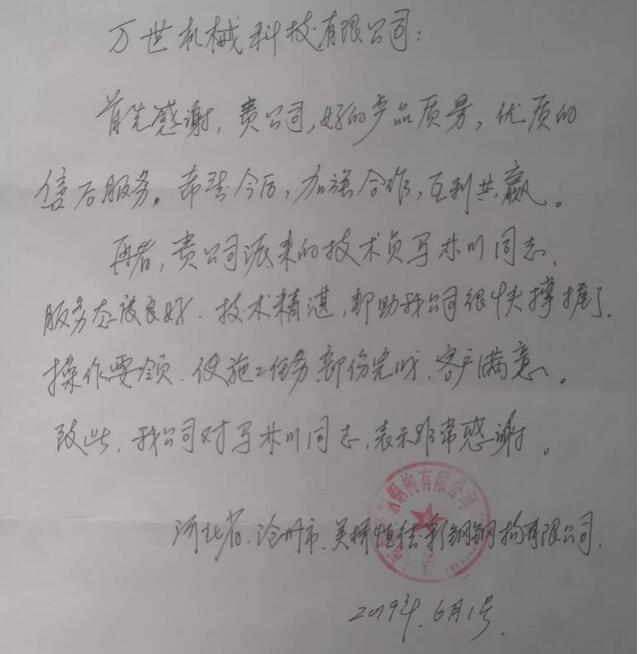 万世机械科技有限公司：
首先感谢，贵公司，好的产品质量，优质的
售后服务。希望今后，加强合作，互利共赢。
再者，贵公司派来的技术员马林川同志、
服务态度良好、技术精湛，帮助我公司很快掌握了
操作要领、使施工任务部份完成、客户满意。
致此、我公司对马林川同志，表示非常感谢。
河北省、沧州市、吴桥恒佳彩钢钢构有限公司、
2019年、6月1号、
钢构有限公司